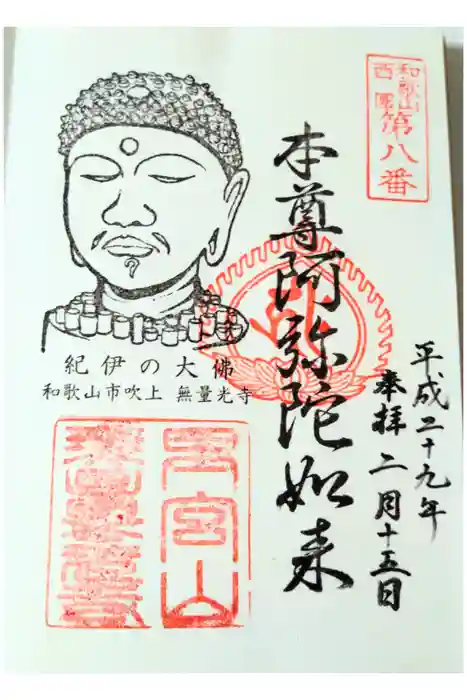 和歌山
西国
第八番
本尊阿弥陀如来
平成二十九年
奉拝 二月十五日
紀伊の大佛
和歌山市吹上 無量光寺